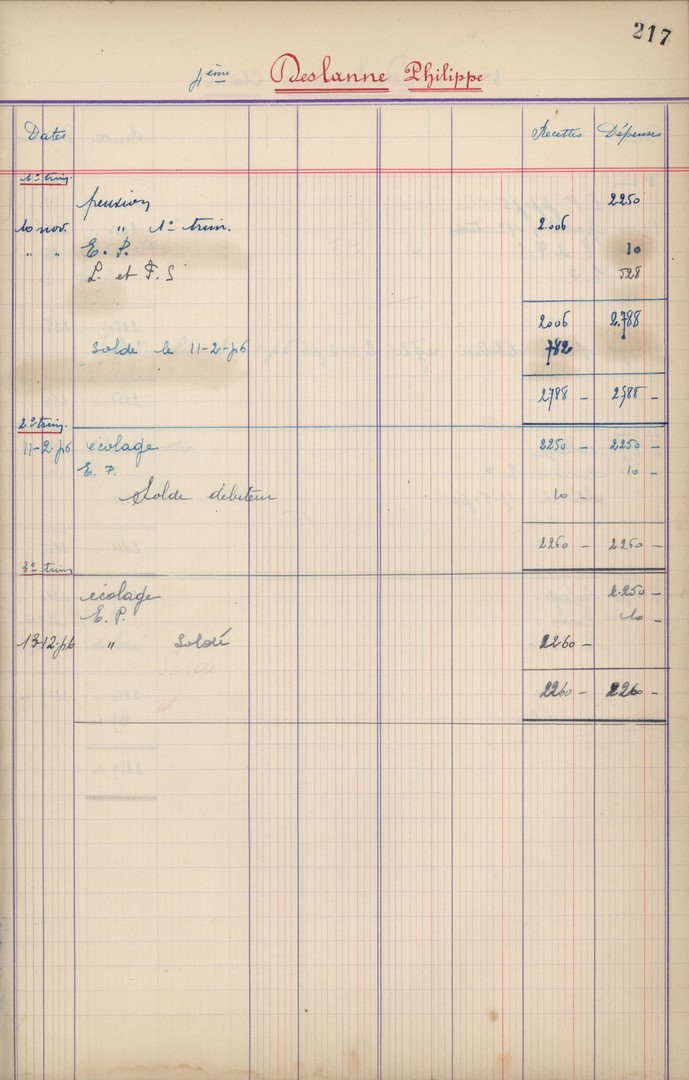 217
4ème Deslanne Philippe
Dates Recettes Dépenses
1° trim.
pension 2250
10 nov. " 1° trim. 2.006
" " E. P. 10
L. et F. S 528
2006 2.788
soldé le 11-2-56 782
2788 - 2788 -
2° trim.
11-2-56 écolage 2250 - 2250 -
E. P. 10 -
Solde débiteur 10 -
2260 - 2260 -
3° trim
écolage 2.250 -
E. P. 10 -
" soldé 2260 -
2260 - 2260 -